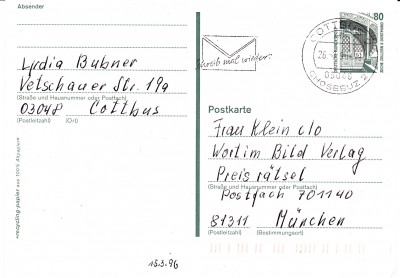 Absender
Lydia Bubner
Vetschauer Str. 19a
(Straße und Hausnummer oder Postfach)
03048 Cottbus
(Postleitzahl) (Ort)
recycling-papier aus 100% Altpapier
schreib mal wieder!
COTTBUS
03048
80
DEUTSCHE BUNDESPOST
Postkarte
Frau Klein c/o
Wort im Bild Verlag
Preisrätsel
(Straße und Hausnummer oder Postfach)
Postfach 701140
81311 München
(Postleitzahl) (Bestimmungsort)
15.3.96